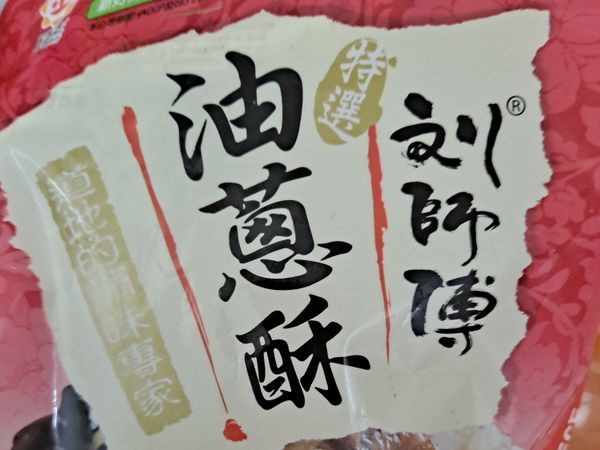 刘師傅®
特選
油蔥酥
道地的調味專家